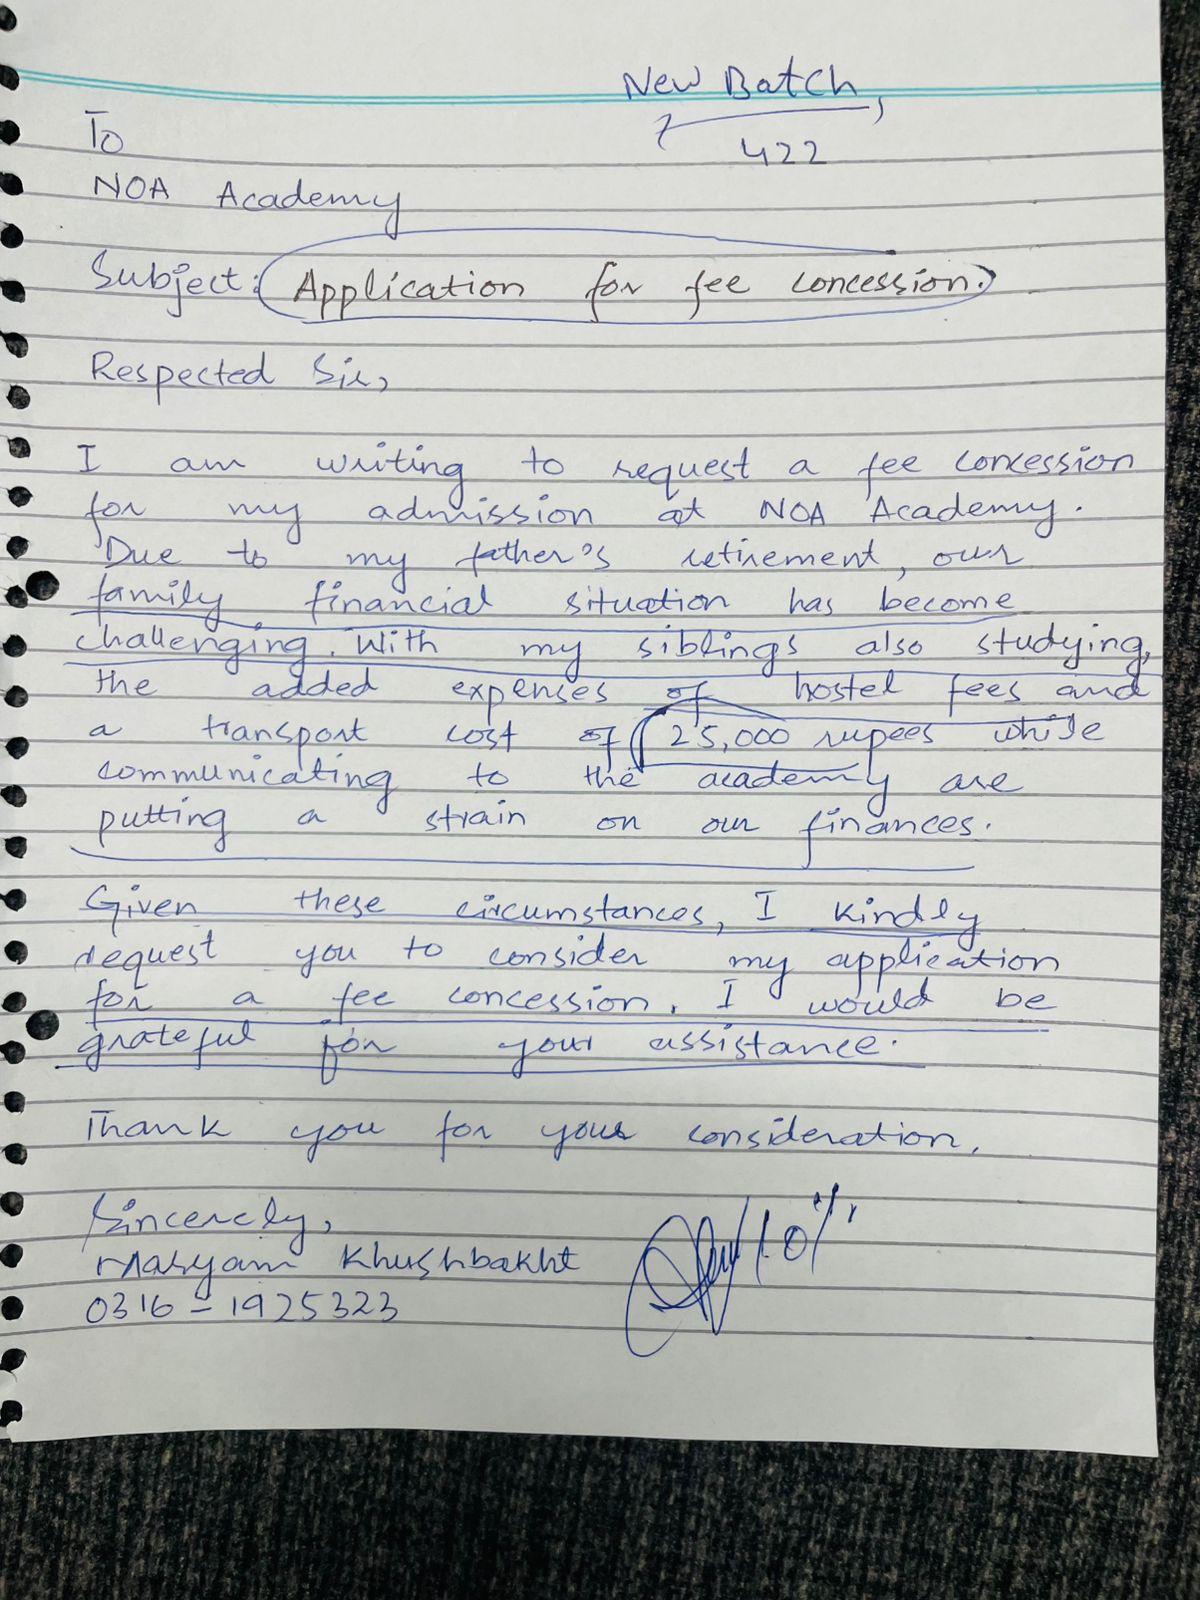 New Batch,
422
To
NOA Academy
Subject: Application for fee concession.
Respected Sir,
I am writing to request a fee concession
for my admission at NOA Academy.
Due to my father's retirement, our
family financial situation has become
challenging. With my siblings also studying,
the added expenses of hostel fees and
a transport cost of 25,000 rupees while
communicating to the academy are
putting a strain on our finances.
Given these circumstances, I kindly
request you to consider my application
for a fee concession. I would be
grateful for your assistance.
Thank you for your consideration.
Sincerely,
Maryam Khushbakht
0316-1925323
10%